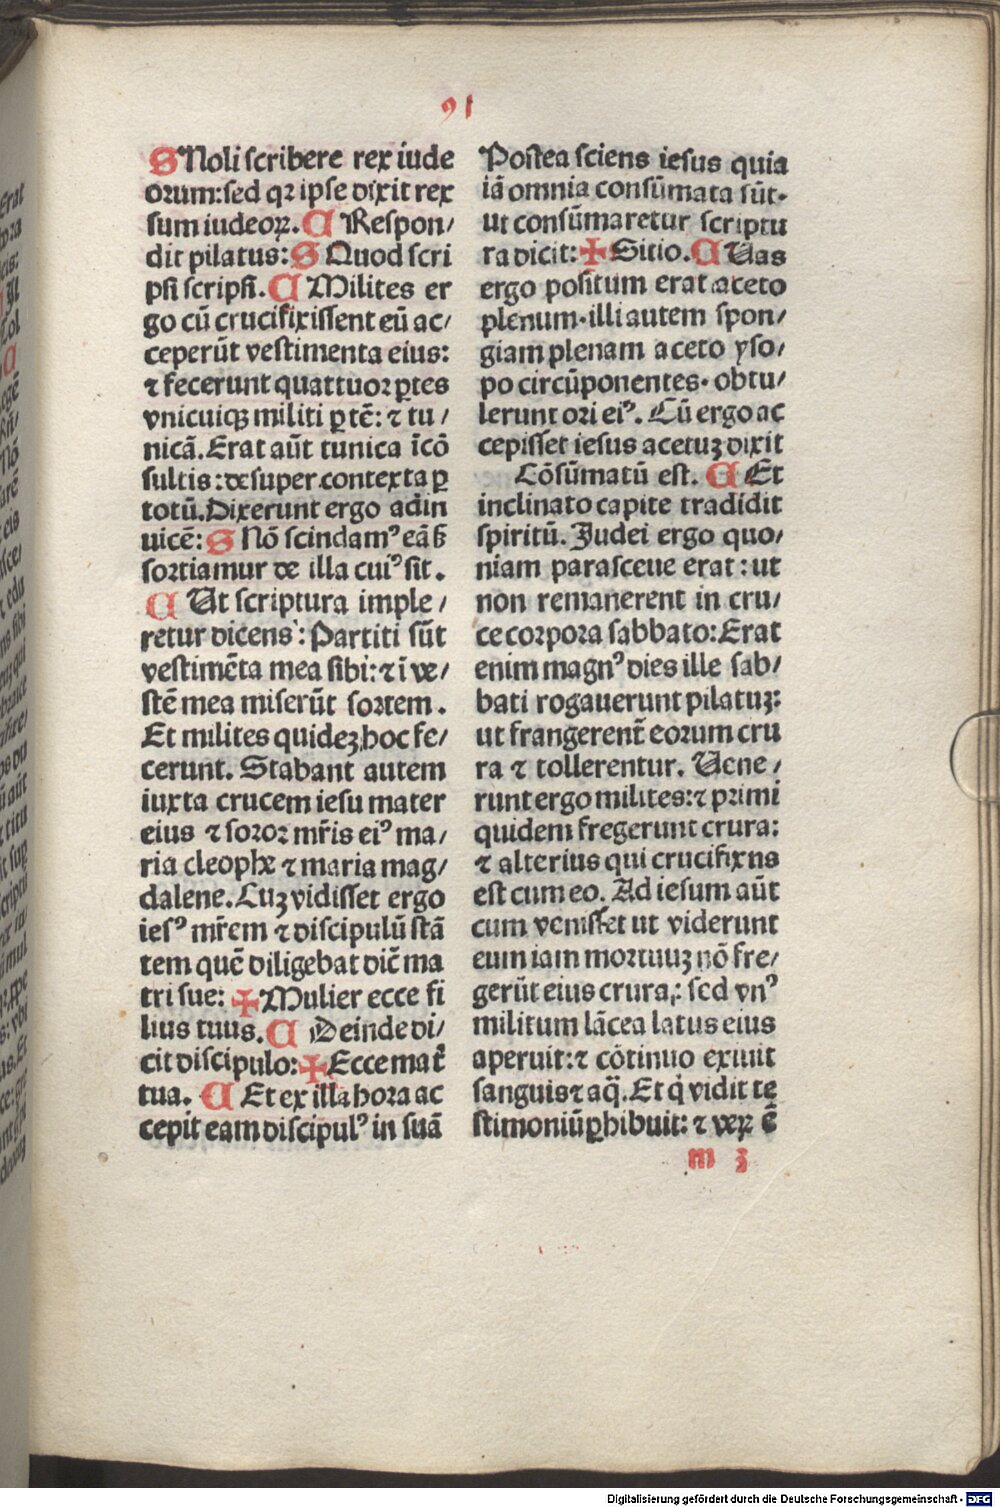 91
S Noli scribere rex iude
orum: sed qꝛ ipse dixit rex
sum iudeoꝝ. C Respon/
dit pilatus: S Quod scri
psi scripsi. C Milites er
go cū crucifixissent eū ac/
ceperūt vestimenta eius:
⁊ fecerunt quattuor ꝑtes
vnicuiqꝫ militi ꝑtē: ⁊ tu/
nicā. Erat aūt tunica īcō
sultis: desuper contexta ꝑ
totū. Dixerunt ergo adin
uicē: S Nō scindamꝰ eā ſꝫ
sortiamur de illa cuiꝰ sit.
C Ut scriptura imple/
retur dicens: Partiti sūt
vestimēta mea sibi: ⁊ ī ve/
stē mea miserūt sortem.
Et milites quideꝫ hoc fe/
cerunt. Stabant autem
iuxta crucem iesu mater
eius ⁊ soror mr̄is eiꝰ ma/
ria cleophe ⁊ maria mag/
dalene. Cuꝫ vidisset ergo
iesꝰ mr̄em ⁊ discipulū stā
tem quē diligebat dic̄ ma
tri sue: ✠ Mulier ecce fi
lius tuus. C Deinde di/
cit discipulo: ✠ Ecce mat̄
tua. C Et ex illa hora ac
cepit eam discipulꝰ in suā
Postea sciens iesus quia
iā omnia consūmata sūt.
ut consūmaretur scriptu
ra dicit: ✠ Sitio. C Uas
ergo positum erat aceto
plenum. illi autem spon/
giam plenam aceto yso/
po circūponentes. obtu/
lerunt ori eiꝰ. Cū ergo ac
cepisset iesus acetuꝫ dixit
Cōsūmatū est. C Et
inclinato capite tradidit
spiritū. Judei ergo quo/
niam parasceue erat: ut
non remanerent in cru/
ce corpora sabbato: Erat
enim magnꝰ dies ille sab/
bati rogauerunt pilatuꝫ:
ut frangerent̄ eorum cru
ra ⁊ tollerentur. Uene/
runt ergo milites: ⁊ primi
quidem fregerunt crura:
⁊ alterius qui crucifixus
est cum eo. Ad iesum aūt
cum venisset ut viderunt
eum iam mortuuꝫ nō fre/
gerūt eius crura: sed vnꝰ
militum lācea latus eius
aperuit: ⁊ cōtinuo exiuit
sanguis ⁊ aq̄. Et q̇ vidit te
stimoniū ꝑhibuit: ⁊ veꝝ ē
m 3
Digitalisierung gefördert durch die Deutsche Forschungsgemeinschaft - DFG